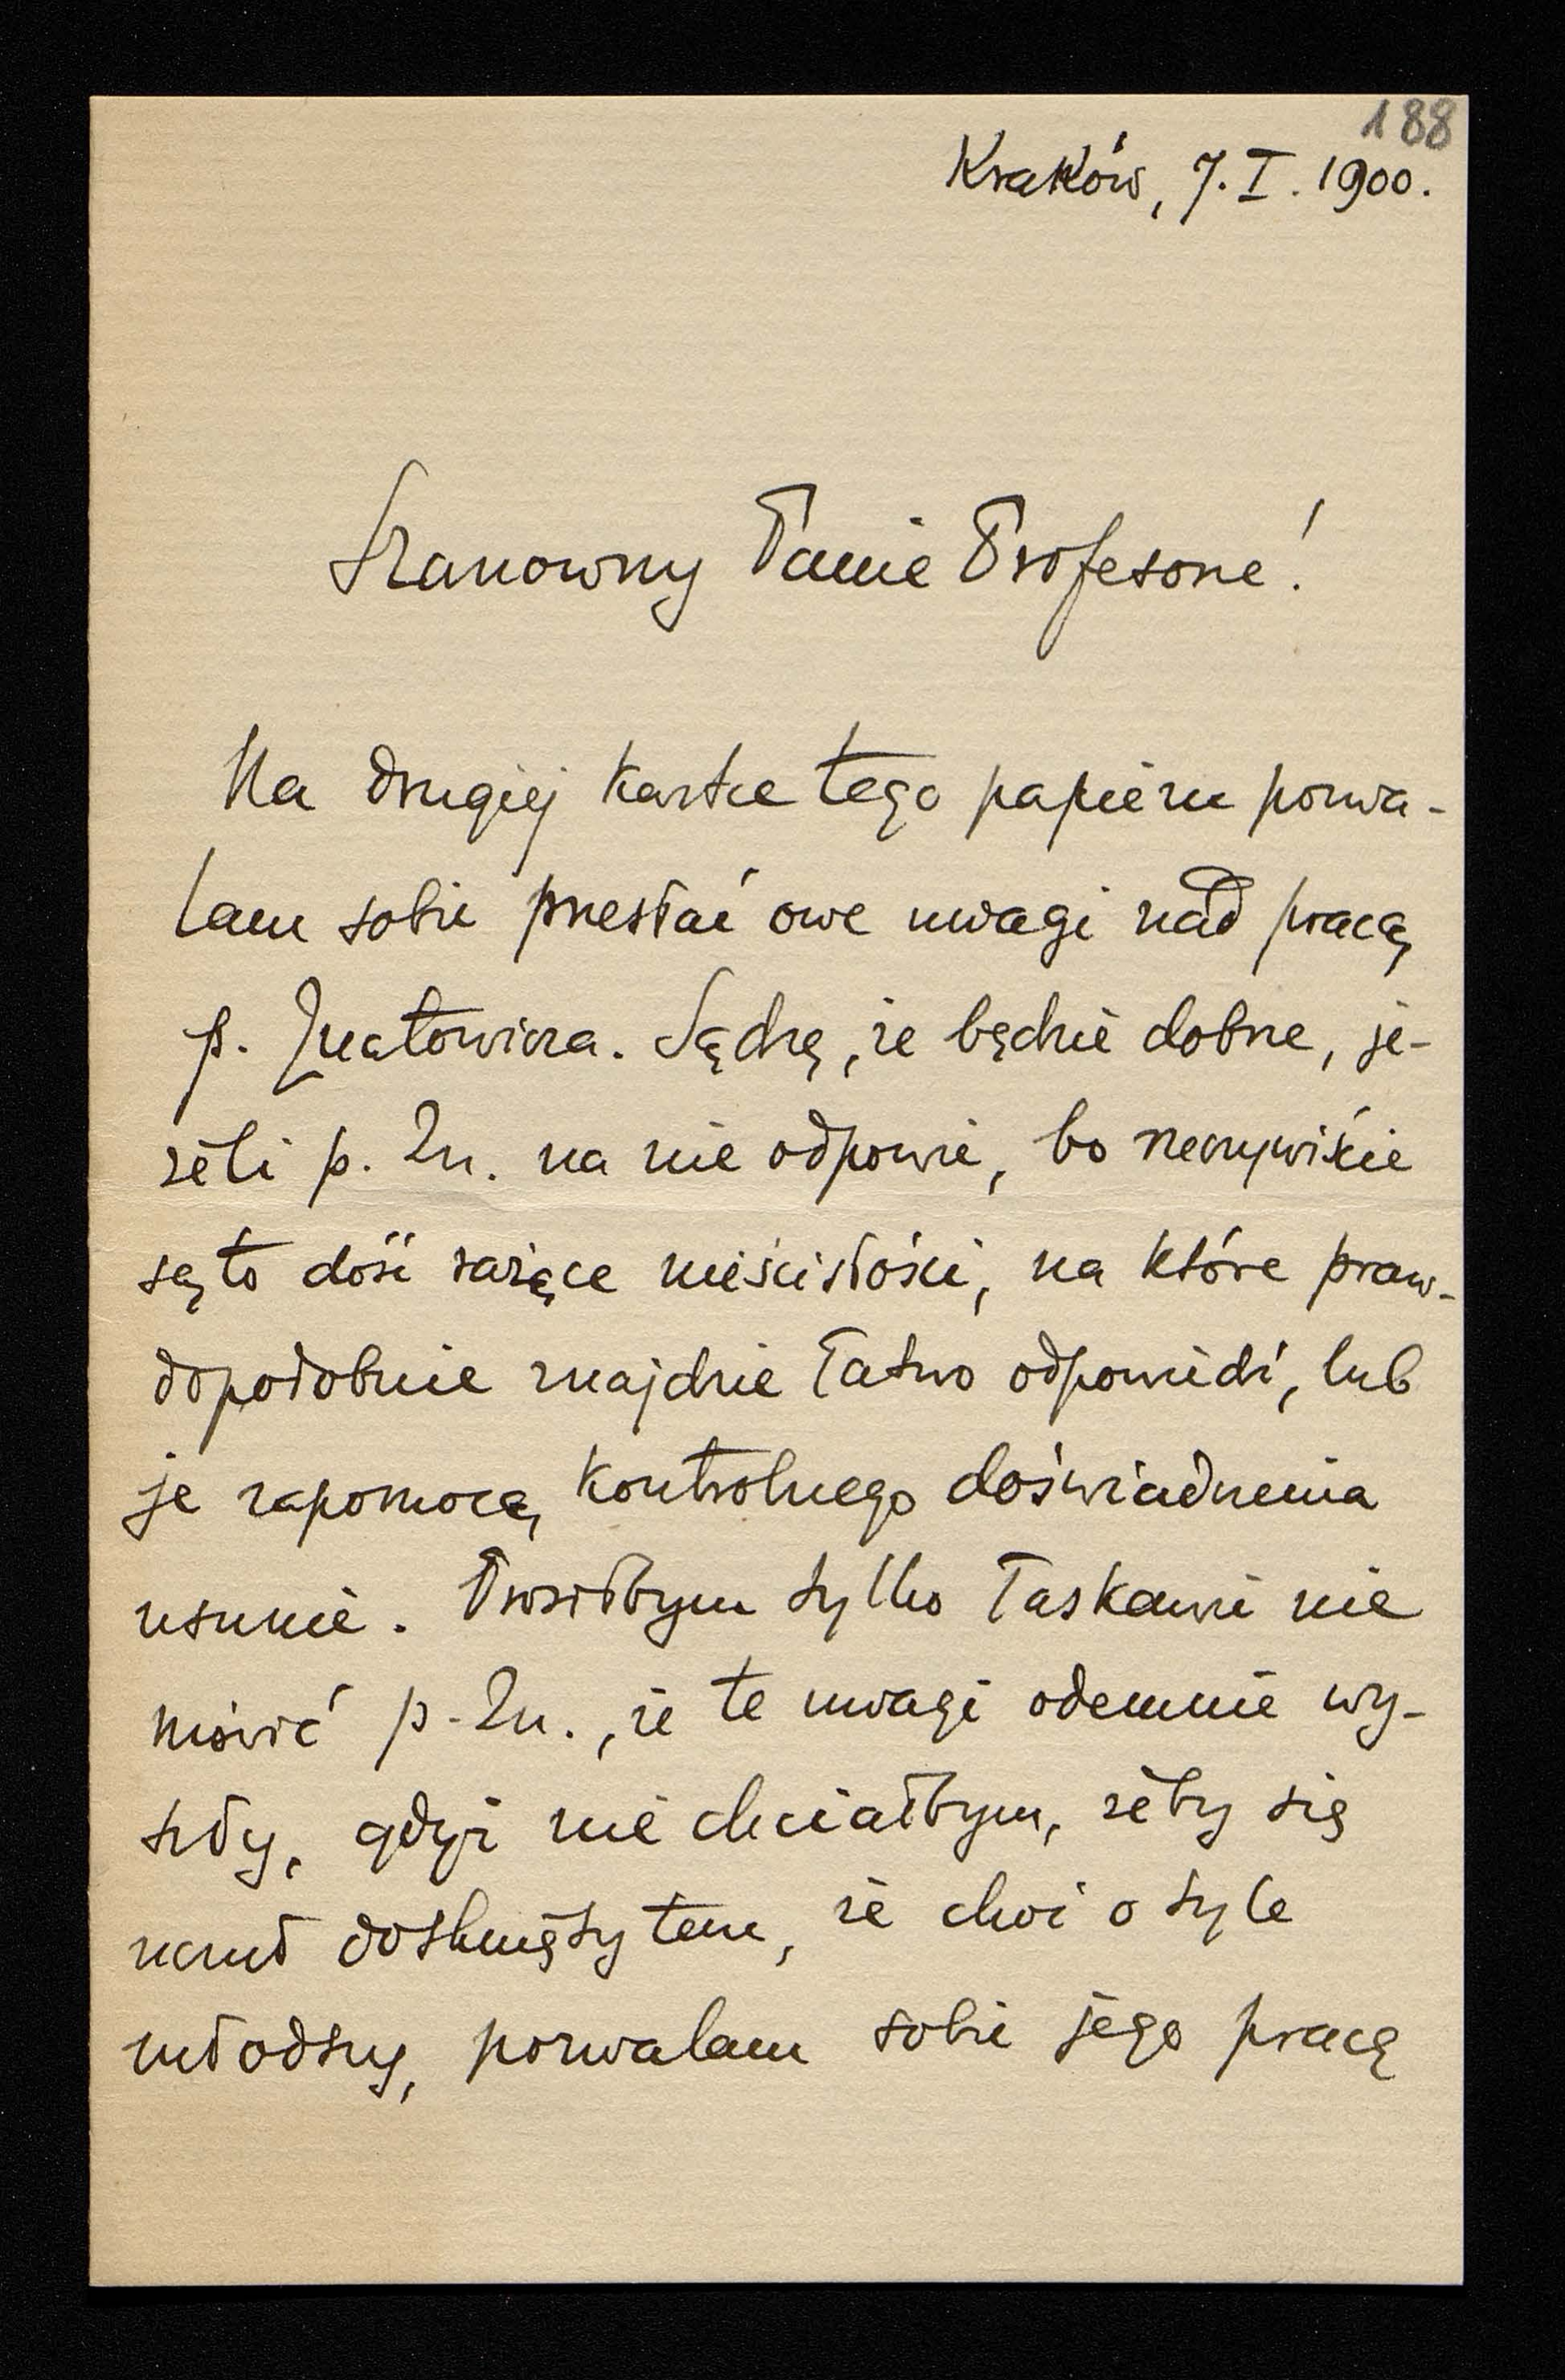 188
Kraków, 7. I. 1900.
Szanowny Panie Profesorze!
Na drugiej kartce tego papieru pozwa-
lam sobie przesłać owe uwagi nad pracą
p. Znatowicza. Sądzę, że będzie dobrze, je-
żeli p. Zn. na nie odpowie, bo rzeczywiście
są to dość rażące nieścisłości, na które praw-
dopodobnie znajdzie łatwo odpowiedź, lub
je zapomocą kontrolnego doświadczenia
usunie. Prosiłbym tylko łaskawie nie
mówić p. Zn., że te uwagi odemnie wy-
szły, gdyż nie chciałbym, żeby się
czuł dotknięty tem, że choć o tyle
młodszy, pozwalam sobie jego pracę